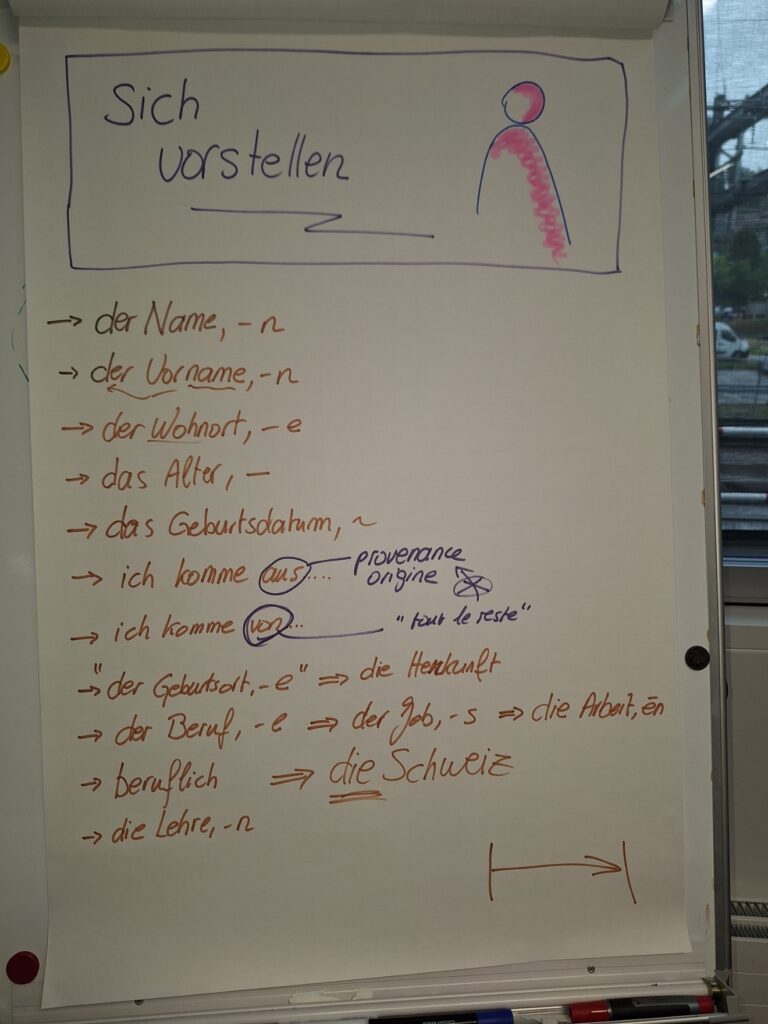 Sich
vorstellen
→ der Name, - n
→ der Vorname, - n
→ der Wohnort, - e
→ das Alter, -
→ das Geburtsdatum, ~
→ ich komme aus.... provenance
origine
→ ich komme von... "tout le reste"
→ "der Geburtsort, - e" ⇒ die Herkunft
→ der Beruf, - e ⇒ der Job, - s ⇒ die Arbeit, en
→ beruflich ⇒ die Schweiz
→ die Lehre, - n